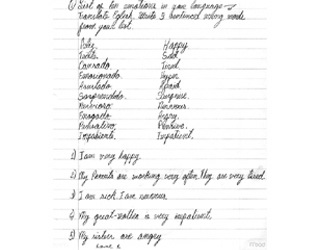 ① List of ten emotions in your language →
Translate English. Write 5 sentences using made
from your list.
Feliz Happy
Triste Sad
Cansado Tired
Emocionado
Asustado Afraid
Sorprendido Surprise
Nervioso Nervous
Enojado Angry
Pensativo Pensive
Impaciente Impatient
1) I am very happy.
2) My Parents are working very often they are very tired
3) I am sick I am nervous
4) My great-mother is very impatient,
5) My sister are angry